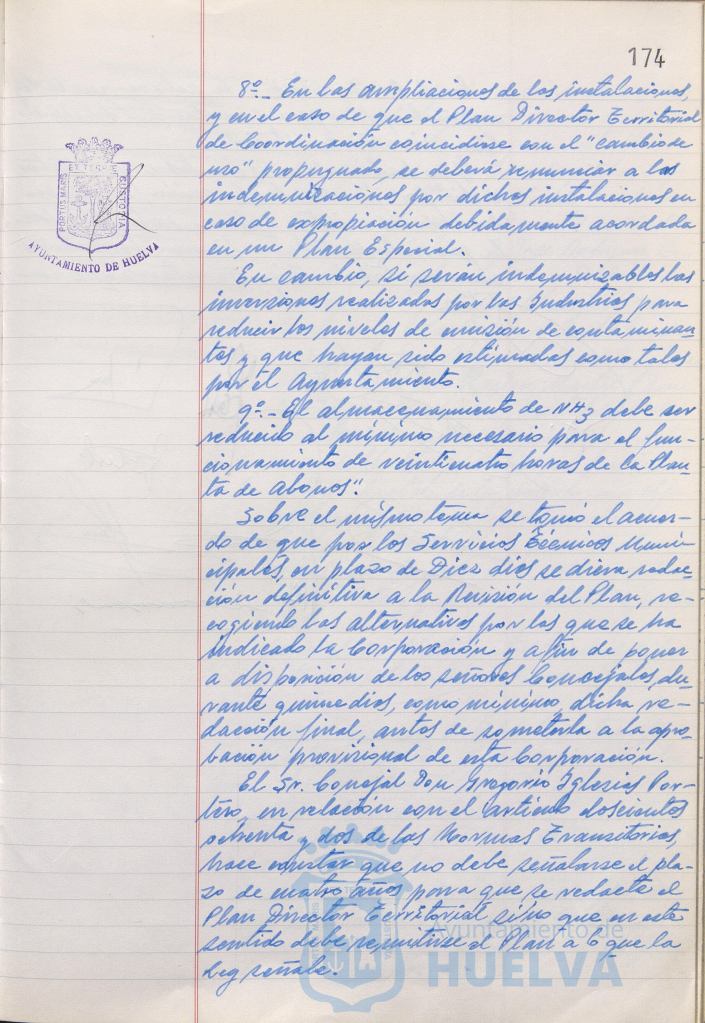 174
8º.- En las ampliaciones de las instalaciones,
y en el caso de que el Plan Director Territorial
de Coordinación coincidiese con el "cambio de
uso" propugnado, se deberá renunciar a las
indemnizaciones por dichas instalaciones en
caso de expropiación debidamente acordada
en un Plan Especial.
En cambio, si serán indemnizables las
inversiones realizadas por las Industrias para
reducir los niveles de emisión de contaminan-
tes y que hayan sido estimadas como tales
por el Ayuntamiento.
9º.- El almacenamiento de NH3 debe ser
reducido al mínimo necesario para el fun-
cionamiento de veinticuatro horas de la Plan-
ta de Abonos".
Sobre el mismo tema se tomó el acuer-
do de que por los Servicios Técnicos Muni-
cipales, en plazo de Diez días se diera redac-
ción definitiva a la Revisión del Plan, re-
cogiendo las alternativas por las que se ha
indicado la Corporación y a fin de poner
a disposición de los señores Concejales, du-
rante quince días, como mínimo, dicha re-
dacción final, antes de someterla a la apro-
bación provisional de esta Corporación.
El Sr. Concejal Don Gregorio Iglesias Por-
tero, en relación con el artículo doscientos
ochenta y dos de las Normas Transitorias,
hace constar que no debe señalarse el pla-
zo de cuatro años para que se redacte el
Plan Director Territorial sino que en este
sentido debe remitirse el Plan a lo que la
Ley señale.
PORTUS MARIS ET TERRE CUSTODIA
AYUNTAMIENTO DE HUELVA
Ayuntamiento de
HUELVA